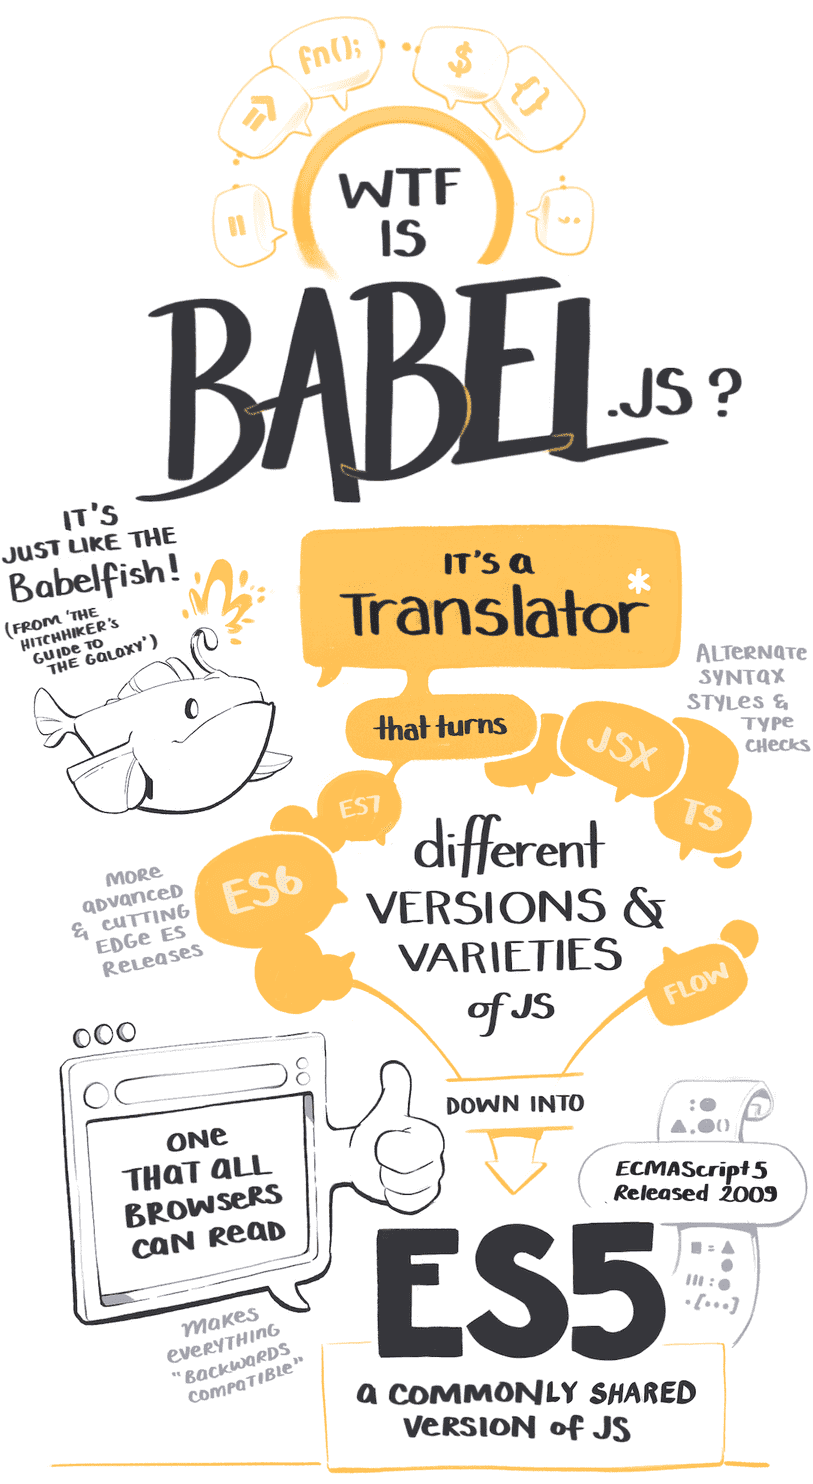 =>
fn();
$
{}
"
;
WTF
IS
BABEL.JS?
IT'S
JUST LIKE THE
Babelfish!
(FROM 'THE
HITCHHIKER'S
GUIDE TO
THE GALAXY')
IT'S a
Translator*
that turns
ALTERNATE
SYNTAX
STYLES &
TYPE
CHECKS
JSX
TS
ES7
ES6
different
VERSIONS &
VARIETIES
of JS
MORE
advanced
& CUTTING
EDGE ES
Releases
FLOW
DOWN INTO
ONE
THAT ALL
BROWSERS
CAN READ
ECMAScript 5
Released 2009
ES5
Makes
everything
"BACKWARDS
COMPATIBLE"
a COMMONLY SHARED
VERSION of JS